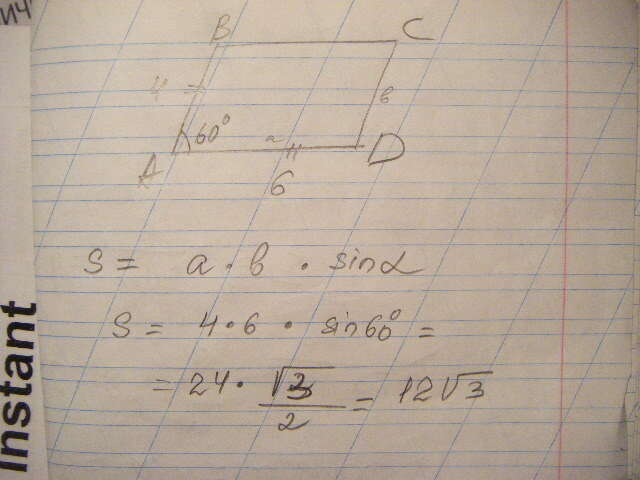 ИЧ
B C
4 в
60°
a
A D
6
S = a · в · sinα
S = 4 · 6 · sin60° =
= 24 · √3/2 = 12√3
Instant